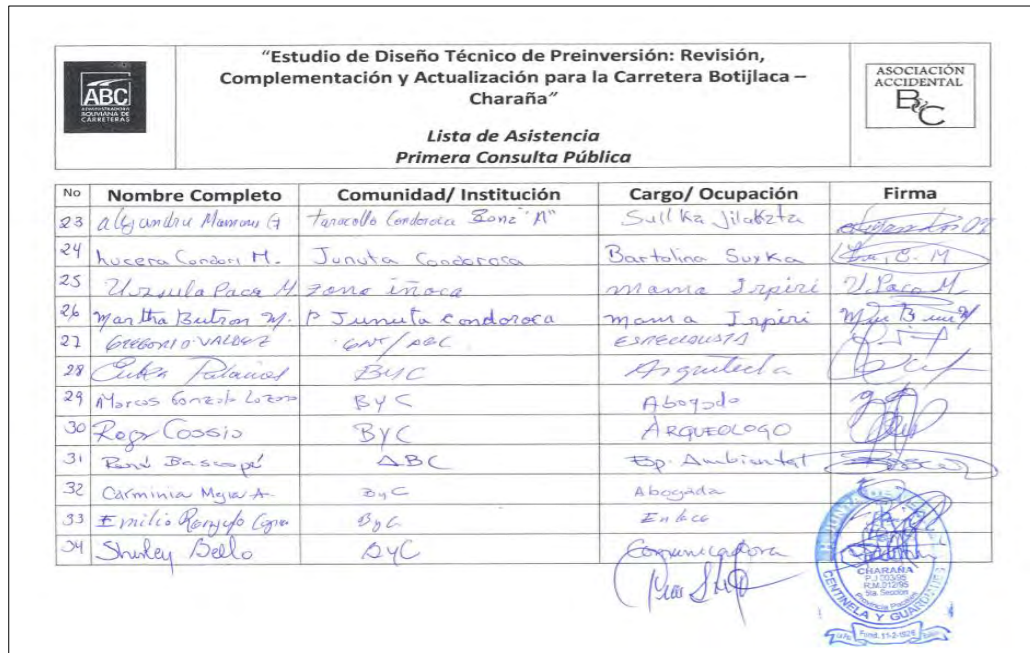 ABC
ADMINISTRADORA
BOLIVIANA DE
CARRETERAS
"Estudio de Diseño Técnico de Preinversión: Revisión,
Complementación y Actualización para la Carretera Botijlaca –
Charaña"
Lista de Asistencia
Primera Consulta Pública
ASOCIACIÓN
ACCIDENTAL
ByC
No Nombre Completo Comunidad/ Institución Cargo/ Ocupación Firma
23 Mamani G Condoroca "A" Sullka Jilakata
24 Lucera Condori M. Junuta Condoroca Bartolina Suxka
25 Urzula Paca M zona iñoca mama Irpiri U. Paca M
26 Martha Butron M. P Junuta Condoroca mama Irpiri
27 GREGORIO VALDEZ ESPECIALISTA
28 Palacios ByC Arquitecta
29 Marcos Gonzalo Lozano ByC Abogado
30 Roger Cossio ByC ARQUEOLOGO
31 René Bascopé ABC Esp. Ambiental
32 Carminia Mejia A. ByC Abogada
33 Emilio ByC Enlace
34 Shirley Bello ByC Comunicadora
CHARAÑA
P.J 003/95
R.M.012/95
5ta. Sección
CENTINELA Y